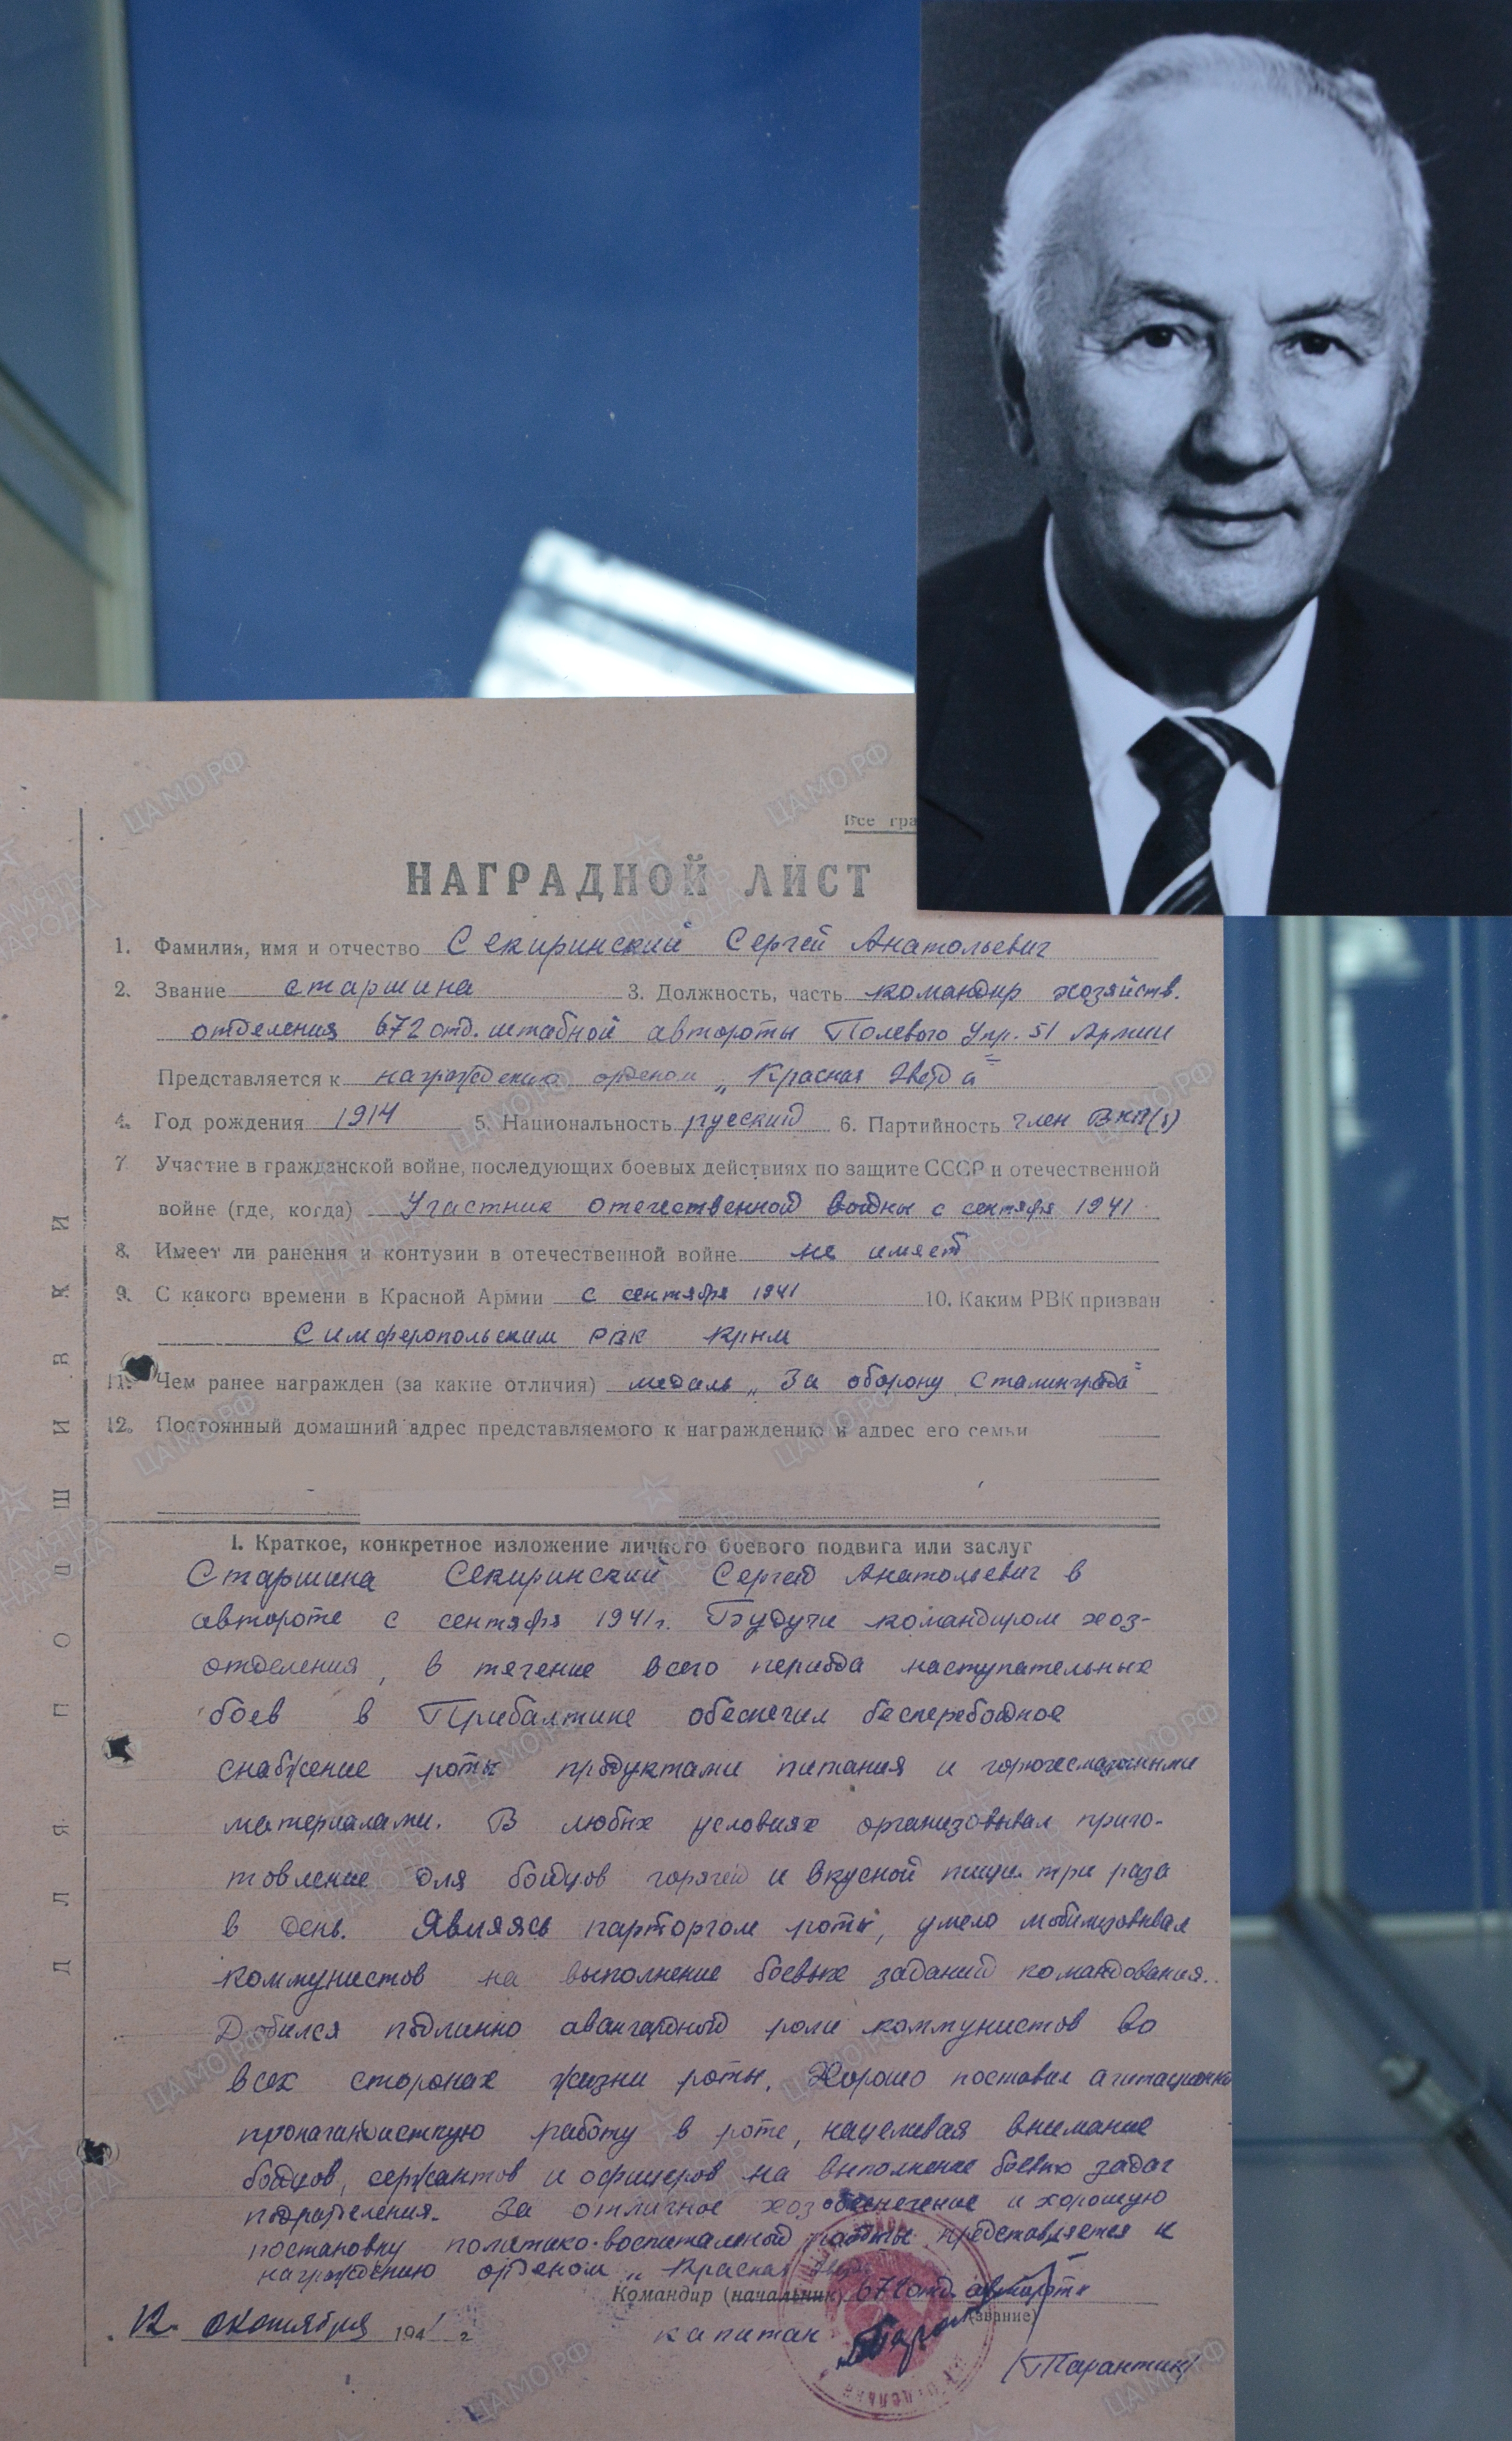 Все
НАГРАДНОЙ ЛИСТ
1. Фамилия, имя и отчество Секиринский Сергей Анатольевич
2. Звание старшина 3. Должность, часть командир хозяйств.
отделения 672 отд. штабной автороты Полевого Упр. 51 Армии
Представляется к награждению орденом „Красная Звезда"
4. Год рождения 1914 5. Национальность русский 6. Партийность член ВКП(б)
7. Участие в гражданской войне, последующих боевых действиях по защите СССР и отечественной
войне (где, когда) Участник отечественной войны с сентября 1941
8. Имеет ли ранения и контузии в отечественной войне не имеет
9. С какого времени в Красной Армии с сентября 1941 10. Каким РВК призван
Симферопольским РВК Крым
11. Чем ранее награжден (за какие отличия) медаль „За оборону Сталинграда"
12. Постоянный домашний адрес представляемого к награждению и адрес его семьи
I. Краткое, конкретное изложение личного боевого подвига или заслуг
Старшина Секиринский Сергей Анатольевич в
автороте с сентября 1941 г. Будучи командиром хоз-
отделения, в течение всего периода наступательных
боев в Прибалтике обеспечил бесперебойное
снабжение роты продуктами питания и горючесмазочными
материалами. В любых условиях организовывал приго-
товление для бойцов горячей и вкусной пищи три раза
в день. Являясь парторгом роты, умело мобилизовывал
коммунистов на выполнение боевых заданий командования.
Добился подлинно авангардной роли коммунистов во
всех сторонах жизни роты. Хорошо поставил агитационно
пропагандистскую работу в роте, нацеливая внимание
бойцов, сержантов и офицеров на выполнение боевых задач
подразделения. За отличное хозобеспечение и хорошую
постановку политико-воспитательной работы представляется к
награждению орденом „Красная
Командир (начальник) 672 отд. автороты
(звание)
12. октября 194 г.
капитан
/Тарантин/
ДЛЯ ПОДШИВКИ
ЦАМО.РФ
ПАМЯТЬ НАРОДА